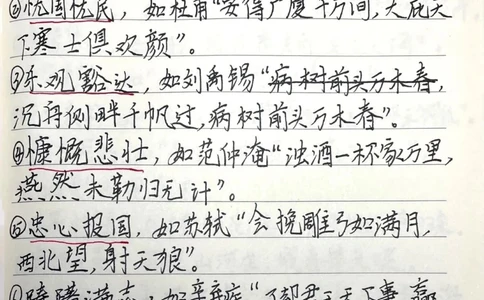 ②忧国忧民，如杜甫“安得广厦千万间，大庇天
下寒士俱欢颜”。
③乐观豁达，如刘禹锡“病树前头万木春，
沉舟侧畔千帆过，病树前头万木春”。
④慷慨悲壮，如范仲淹“浊酒一杯家万里，
燕然未勒归无计”。
⑤忠心报国，如苏轼“会挽雕弓如满月，
西北望，射天狼”。
满志，如辛弃疾“了却君王天下事，赢